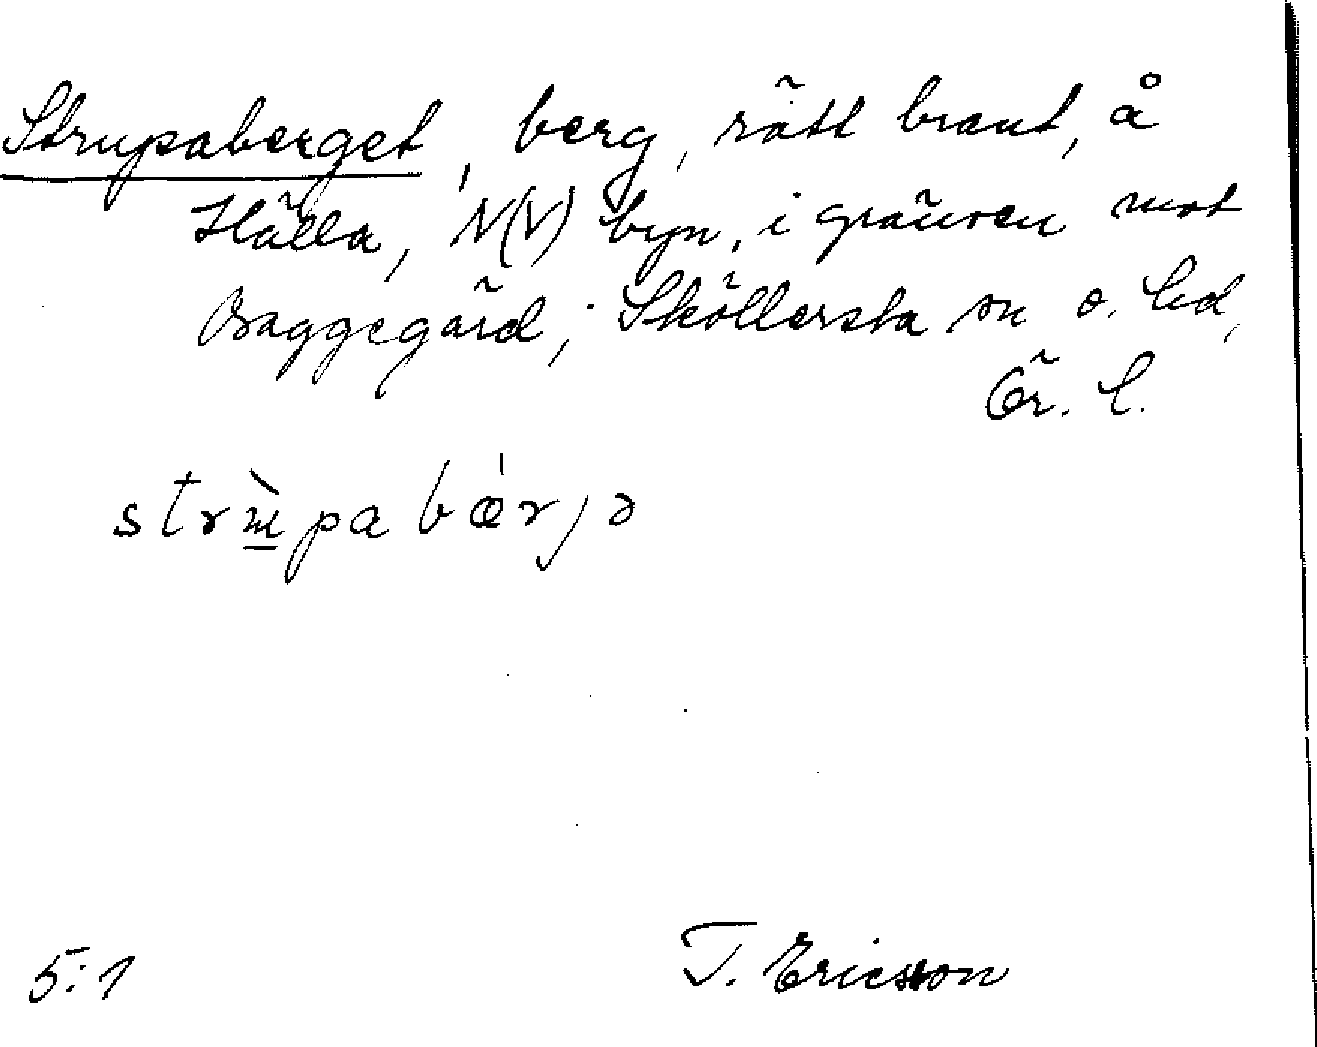 Strupaberget, berg, rätt brant, å
Hälla, N(V) byn, i gränsen mot
Baggegård; Sköllersta sn o. hd,
Ör. l.
strùpabǽrjə
5:1 T. Ericsson